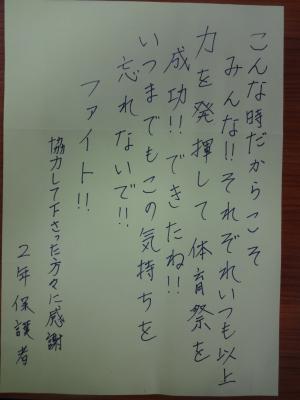 こんな時だからこそ
みんな!!それぞれいつも以上
力を発揮して体育祭を
成功!!できたね!!
いつまでもこの気持ちを
忘れないで!!
ファイト!!
協力して下さった方々に感謝
2年保護者